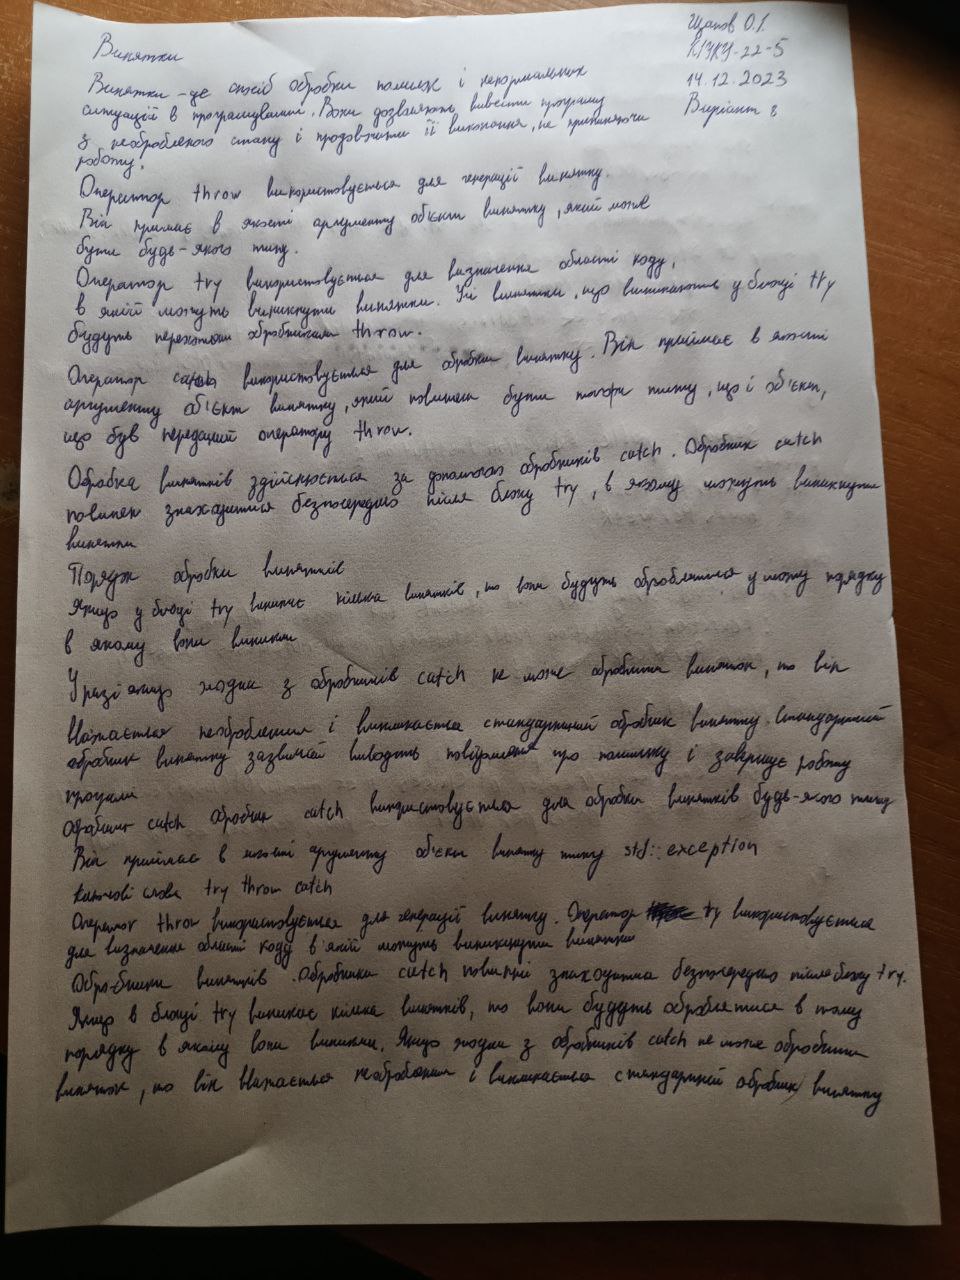 Щапов О.І.
КІУКІ-22-5
14.12.2023
Варіант 8
Винятки
Винятки - це спосіб обробки помилок і ненормальних
ситуацій в програмуванні. Вони дозволяють вивести програму
з необробленого стану і продовжити її виконання, не припиняючи
роботу.
Оператор throw використовується для генерації винятку.
Він приймає в якості аргументу об'єкт винятку, який може
бути будь-якого типу.
Оператор try використовується для визначення області коду,
в якій можуть виникнути винятки. Усі винятки, що виникають у блоці try
будуть перехоплені обробниками throw.
Оператор catch використовується для обробки винятку. Він приймає в якості
аргументу об'єкт винятку, який повинен бути того типу, що і об'єкт,
що був переданий оператору throw.
Обробка винятків здійснюється за допомогою обробників catch. Обробник catch
повинен знаходитися безпосередньо після блоку try, в якому можуть виникнути
винятки
Порядок обробки винятків
Якщо у блоці try виникає кілька винятків, то вони будуть оброблятися у тому порядку
в якому вони виникли
У разі якщо жоден з обробників catch не може обробити виняток, то він
вважається необробленим і викликається стандартний обробник винятку. Стандартний
обробник винятку зазвичай виводить повідомлення про помилку і завершує роботу
програми
обробник catch обробник catch використовується для обробки винятків будь-якого типу
Він приймає в якості аргументу об'єкт винятку типу std::exception
Ключові слова try throw catch
Оператор throw використовується для генерації винятку. Оператор try використовується
для визначення області коду в якій можуть виникнути винятки
Обро-бники винятків. Обробники catch повинні знаходитися безпосередньо після блоку try.
Якщо в блоці try виникає кілька винятків, то вони будуть оброблятися в тому
порядку в якому вони виникли. Якщо жоден з обробників catch не може обробити
виняток, то він вважається необробленим і викликається стандартний обробник винятку